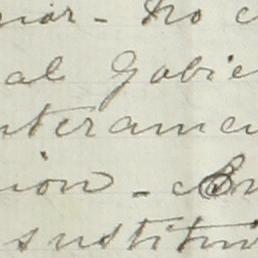 rior - No c
al Gobie
nteramen
ion - En
sustitui